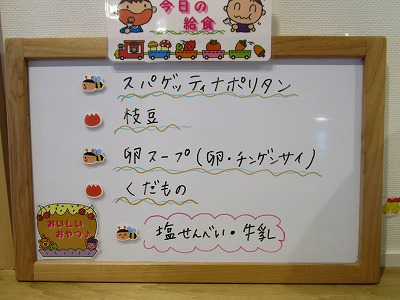 今日の
給食
スパゲッティナポリタン
枝豆
卵スープ(卵・チンゲンサイ)
くだもの
おいしい
おやつ♪
塩せんべい・牛乳